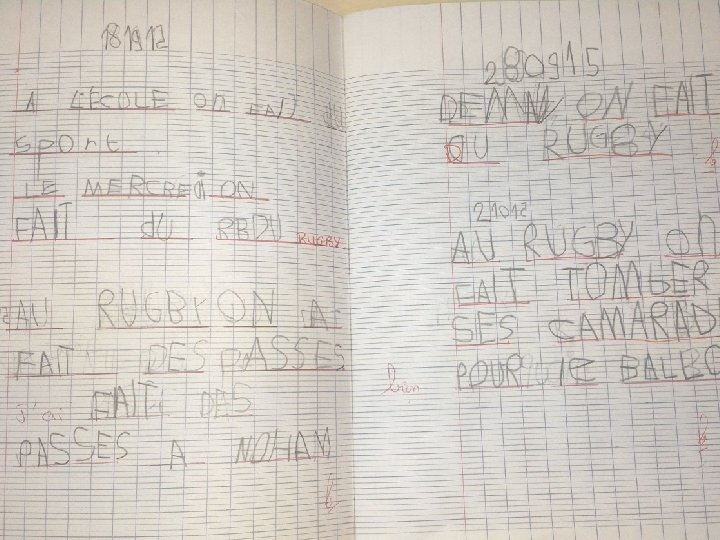 181912
A L'ÉCOLE on FAIT du
sport.
LE MERCREDI ON
FAIT dU RBDU RUGBY
AU RUGBY ON A
FAIT DES PASSES
j'ai FAIT DES
PASSES A NOHAM
280915
DEMN ON FAIT
DU RUGBY
21012
AU RUGBY on
FAIT TOMBER
SES CAMARAD
bien POUR BALLO